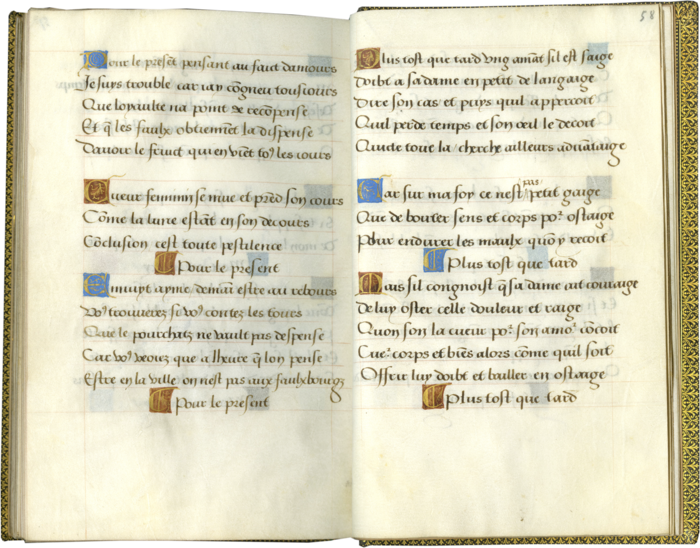 Pour le presẽt pensant au faict damours
Je suys trouble car iay cõgneu tousiours
Que loyaulte na point de recõpense
Et q̃ les faulx obtiennẽt la dispense
Davoir le fruict qui en viẽt toꝰ les iours
Cueur feminin se mue et prẽd son cours
Cõme la lune estãt en son decours
Cõclusion cest toute pestilence
Pour le present
Ennuyt aymé demaĩ estre au rebours
Voꝰ trouuerez si voꝰ contez les tours
Que le pourchatz ne vault pas despense
Car voꝰ veoiez que a lheure q̃ lon pense
Estre en la ville on nest pas aux faulxbourgz
Pour le present
58
Plus tost que tard vng amãt sil est saige
Doibt a sa dame en petit de langaige
Dire son cas et puys quil appercoit
Quil perde temps et son oeil le decoit
Quicte tout la cherche ailleurs aduãtaige
Car sur ma foy ce nest pas petit gaige
Que de bouter sens et corps poꝛ ostaige
Pour endurer les maulx quoy recoit
Plus tost que tard
Mais sil congnoist q̃ sa dame ait couraige
De luy oster celle douleur et raige
Quon son la cueur poꝛ son amoꝛ cõcoit
Cueꝛ corps et biẽs alors cõme quil soit
Offrir luy doibt et bailler en ostaige
Plus tost que tard